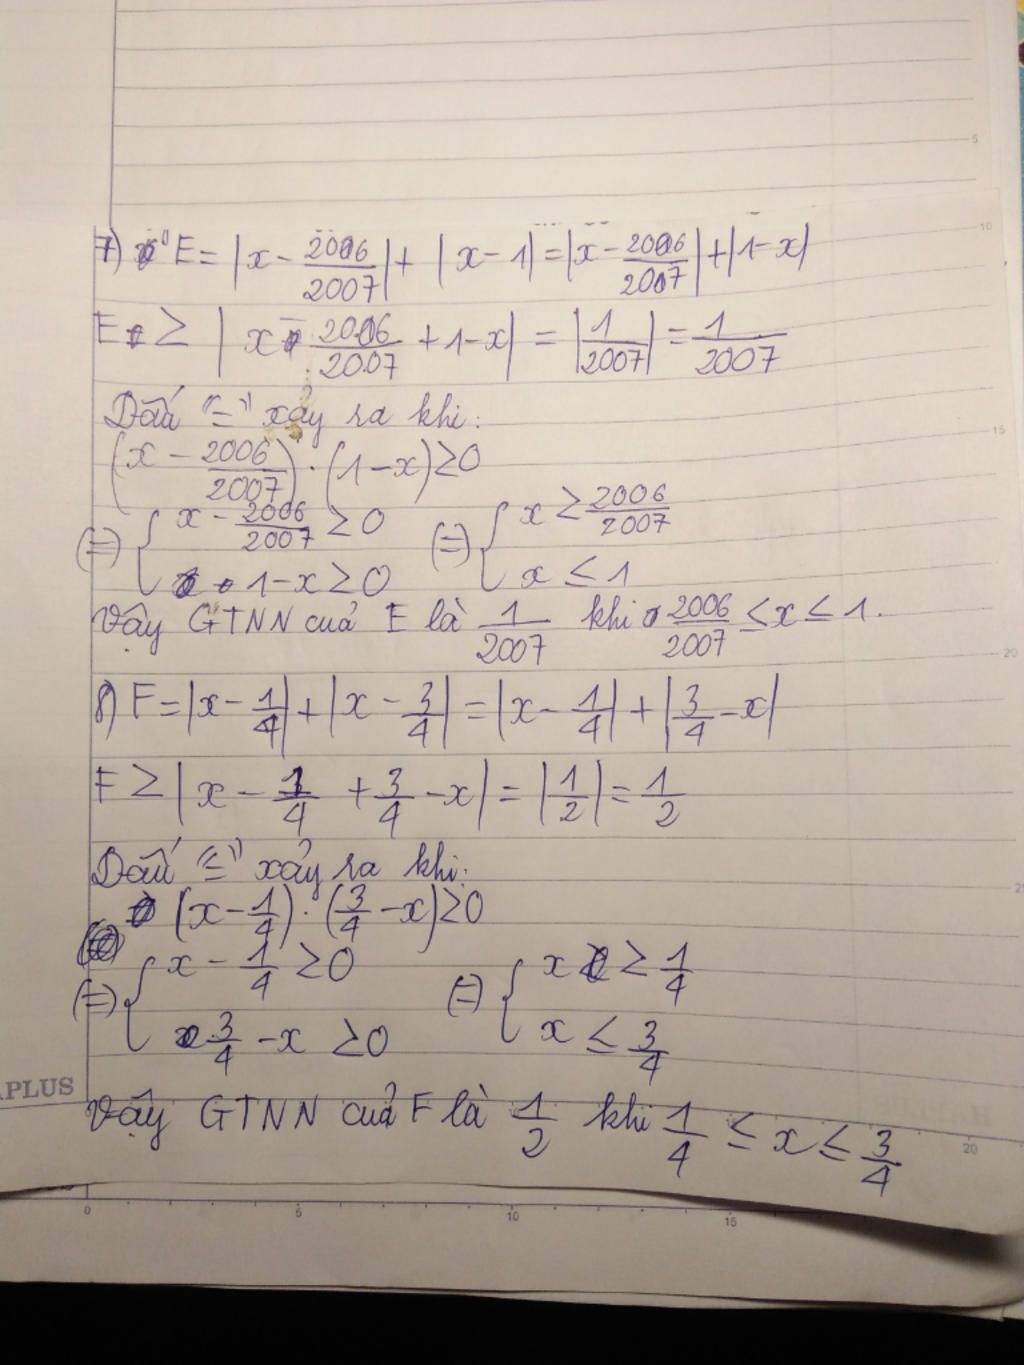 7) E = |x - 2006/2007| + |x - 1| = |x - 2006/2007| + |1 - x|
E ≥ |x - 2006/2007 + 1 - x| = |1/2007| = 1/2007
Dấu "=" xảy ra khi:
(x - 2006/2007) . (1 - x) ≥ 0
(=) { x - 2006/2007 ≥ 0 (=) { x ≥ 2006/2007
1 - x ≥ 0 x ≤ 1
Vậy GTNN của E là 1/2007 khi 2006/2007 ≤ x ≤ 1.
8) F = |x - 1/4| + |x - 3/4| = |x - 1/4| + |3/4 - x|
F ≥ |x - 1/4 + 3/4 - x| = |1/2| = 1/2
Dấu "=" xảy ra khi:
(x - 1/4) . (3/4 - x) ≥ 0
(=) { x - 1/4 ≥ 0 (=) { x ≥ 1/4
3/4 - x ≥ 0 x ≤ 3/4
Vậy GTNN của F là 1/2 khi 1/4 ≤ x ≤ 3/4
5
10
15
20
APLUS
20
0 5 10 15